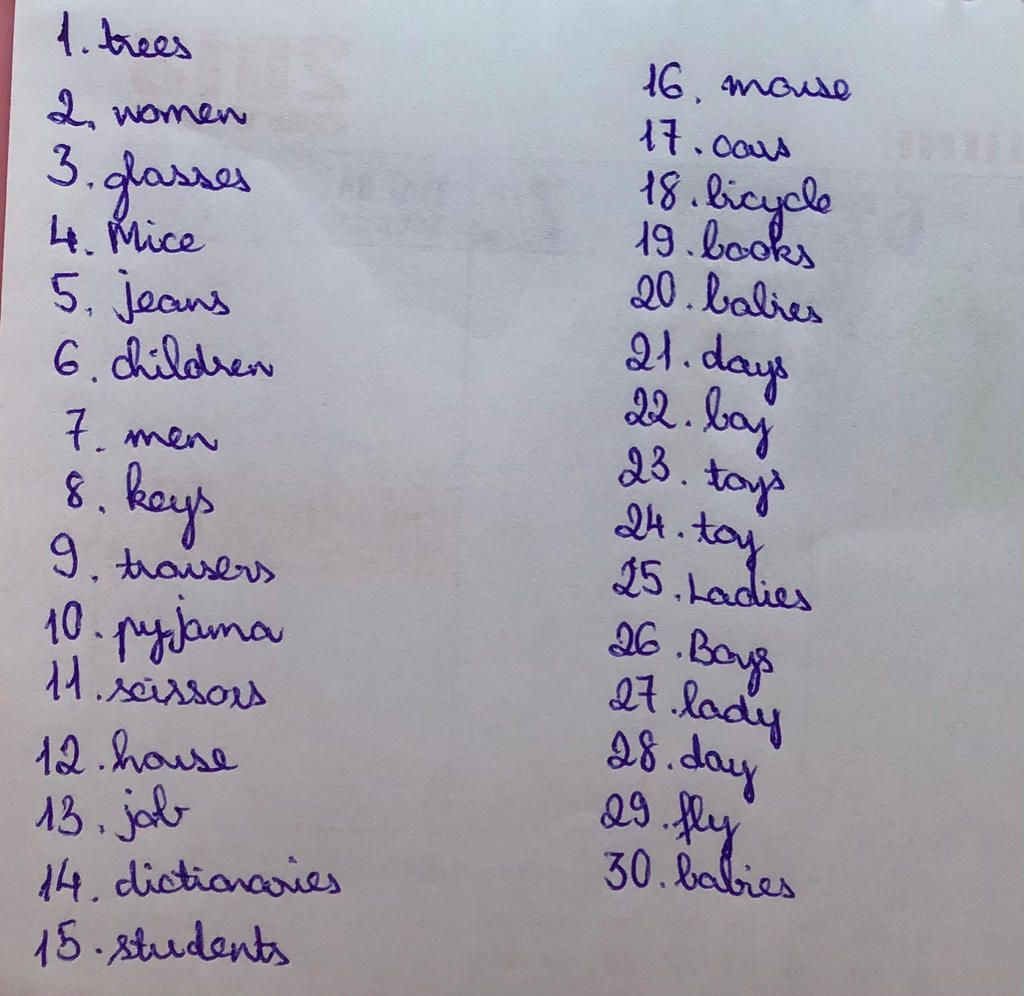 1. trees
2. women
3. glasses
4. Mice
5. jeans
6. children
7. men
8. keys
9. trousers
10. pyjama
11. scissors
12. house
13. job
14. dictionaries
15. students
16. mouse
17. cars
18. bicycle
19. books
20. babies
21. days
22. boy
23. toys
24. toy
25. Ladies
26. Boys
27. lady
28. day
29. fly
30. babies